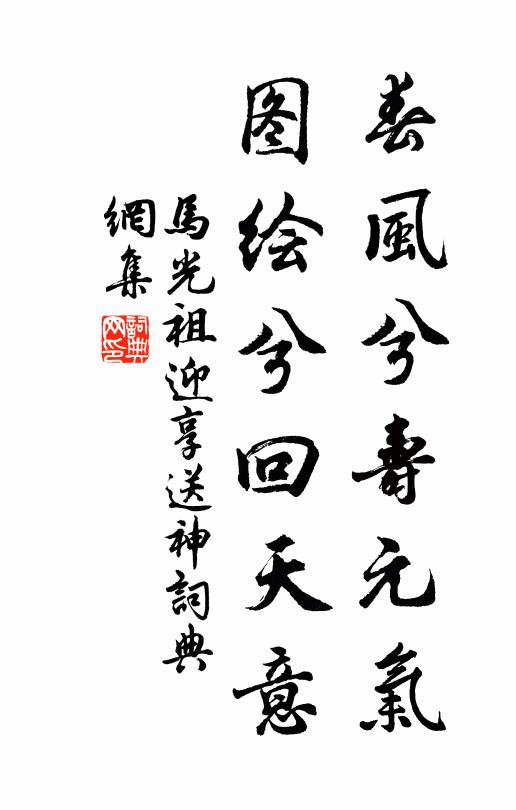 春風兮壽元氣
图绘兮回天意
馬光祖迎享送神詞典
網集
詞典
网印